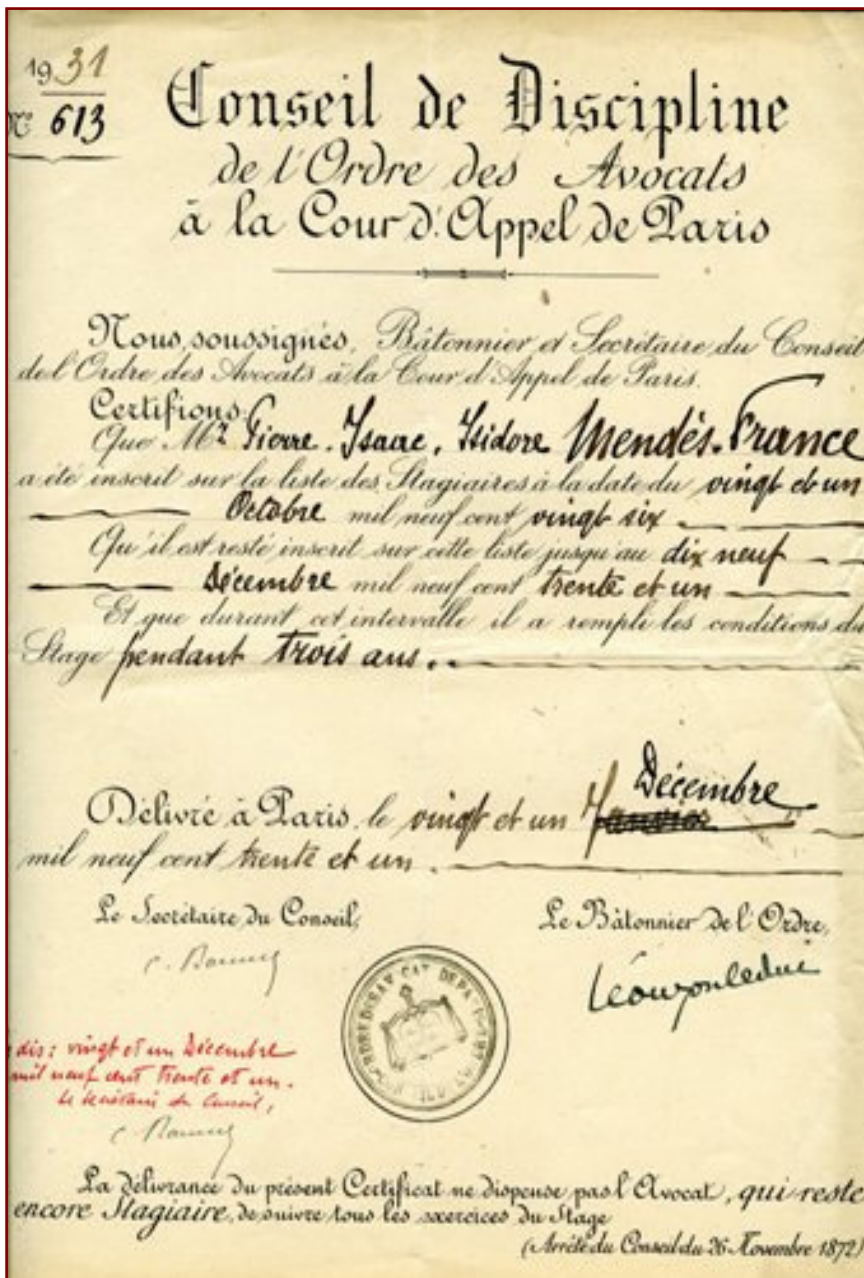 1931
N° 613
Conseil de Discipline
de l'Ordre des Avocats
à la Cour d'Appel de Paris
Nous, soussignés, Bâtonnier et Secrétaire du Conseil
de l'Ordre des Avocats à la Cour d'Appel de Paris.
Certifions:
Que Mr Pierre, Isaac, Isidore Mendès-France
a été inscrit sur la liste des Stagiaires à la date du vingt et un
Octobre mil neuf cent vingt six
Qu'il est resté inscrit sur cette liste jusqu'au dix neuf
Décembre mil neuf cent trente et un
Et que durant cet intervalle il a rempli les conditions du
Stage pendant trois ans.
Décembre
Délivré à Paris, le vingt et un Janvier
mil neuf cent trente et un.
Le Secrétaire du Conseil, Le Bâtonnier de l'Ordre,
dis: vingt et un Décembre
mil neuf cent trente et un.
Le secrétaire du Conseil,
La délivrance du présent Certificat ne dispense pas l'Avocat, qui reste
encore Stagiaire, de suivre tous les exercices du Stage
(Arrêté du Conseil du 26 Novembre 1872)